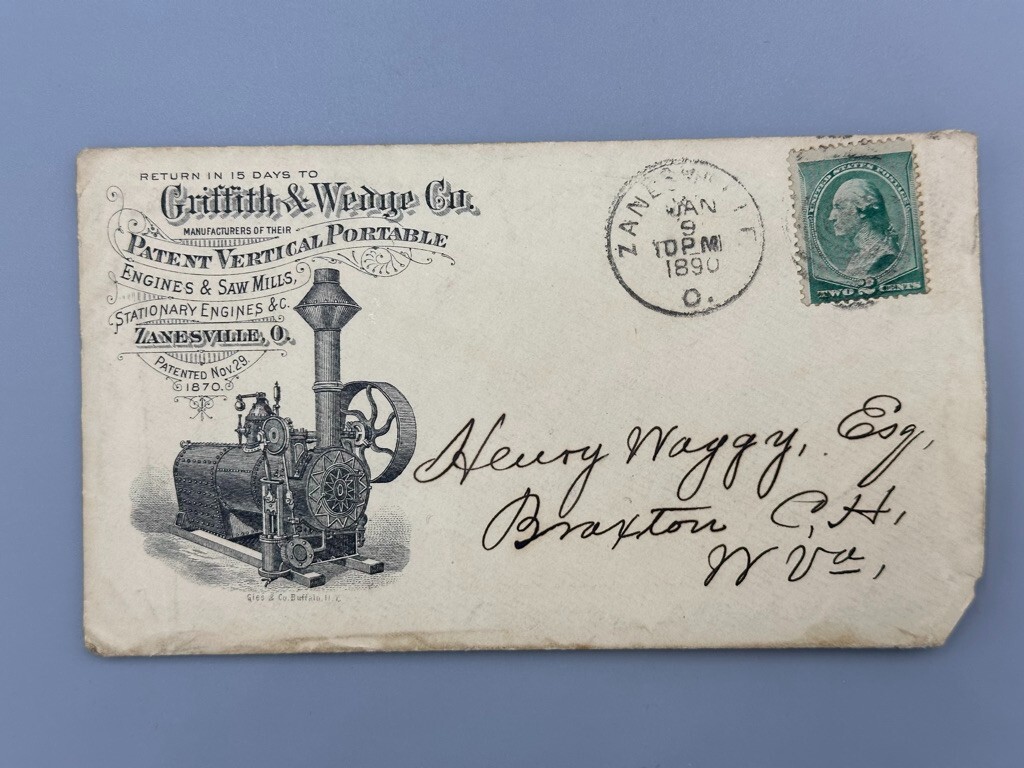 RETURN IN 15 DAYS TO
Griffith & Wedge Co.
MANUFACTURERS OF THEIR
PATENT VERTICAL PORTABLE
ENGINES & SAW MILLS,
STATIONARY ENGINES &C.
ZANESVILLE, O.
PATENTED NOV. 29.
1870.
Gies & Co. Buffalo, N.Y.
ZANESVILLE
JAN
9
10PM
1890
O.
UNITED STATES POSTAGE
TWO 2 CENTS
Henry Waggy, Esq,
Braxton C, H,
W Va,